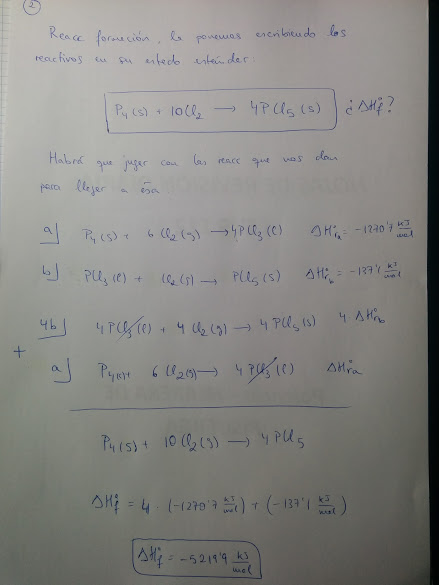 2
Reacc formación, la ponemos escribiendo los
reactivos en su estado estándar:
P₄(s) + 10Cl₂ → 4PCl₅(s) ¿ΔHf°?
Habrá que jugar con las reacc que nos dan
para llegar a ésa
a] P₄(s) + 6Cl₂(g) → 4PCl₃(l) ΔH°ra = -1270'7 kJ/mol
b] PCl₃(l) + Cl₂(g) → PCl₅(s) ΔH°rb = -137'1 kJ/mol
4b] 4PCl₃(l) + 4Cl₂(g) → 4PCl₅(s) 4 ΔH°rb
+
a] P₄(s) + 6Cl₂(g) → 4PCl₃(l) ΔHra
P₄(s) + 10Cl₂(g) → 4PCl₅
ΔHf° = 4·(-1270'7 kJ/mol) + (-137'1 kJ/mol)
ΔHf° = -5219'9 kJ/mol